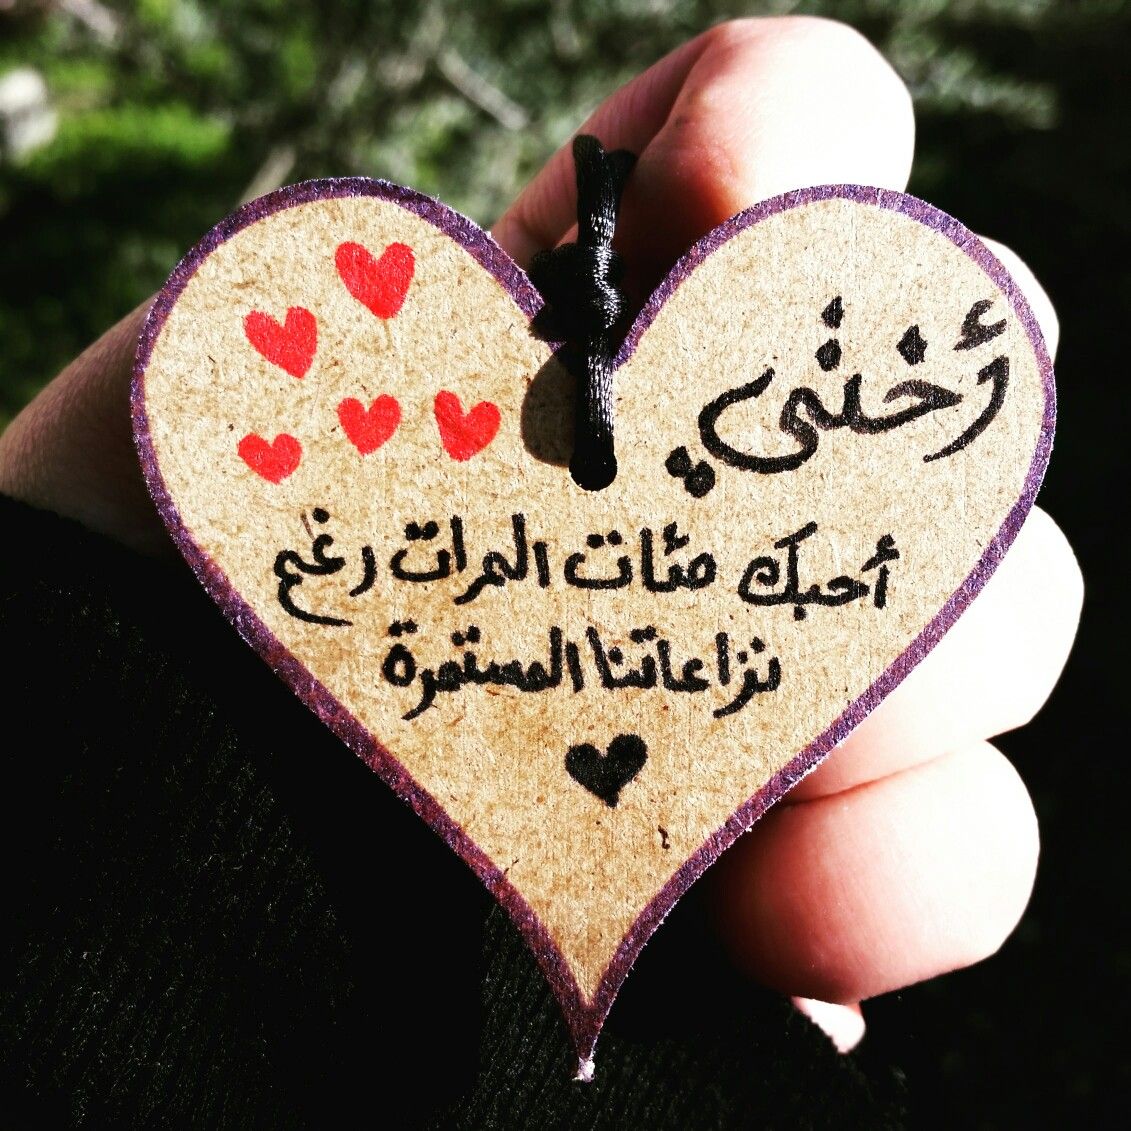 أختي
أحبك مئات المرات رغم
نزاعاتنا المستمرة